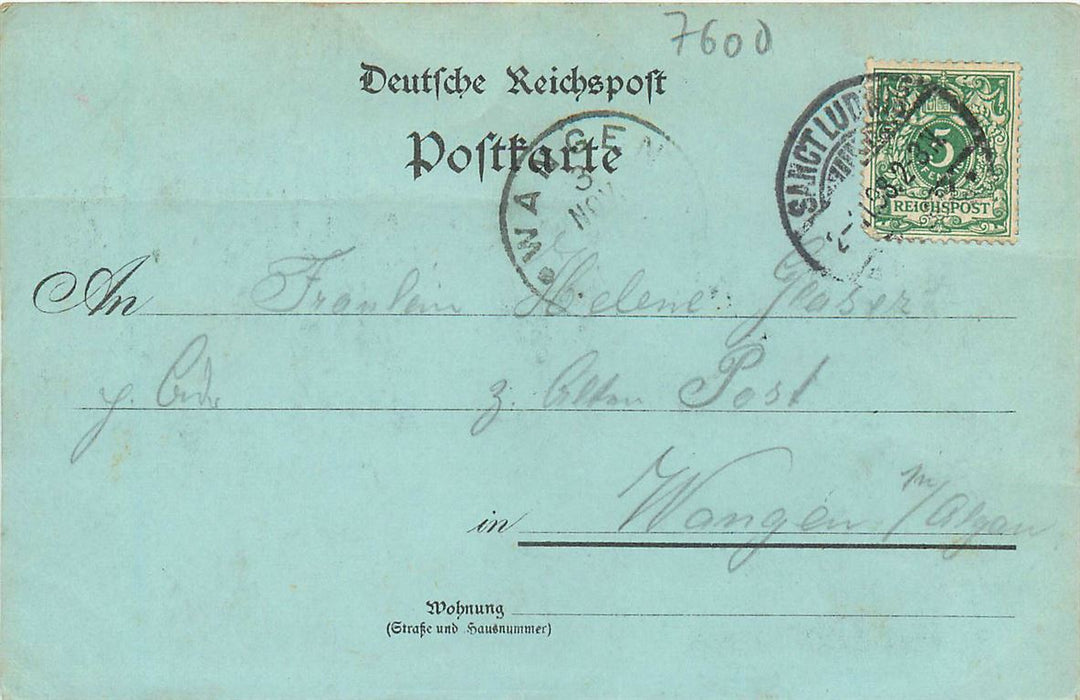 7600
Deutsche Reichspost
Postkarte
WANGEN
3
NOV
SANCT LUDWIG
98. 2-3N
5
REICHSPOST
An Fräulein Helene Geiser
z. Alten Post
in Wangen /Algäu
Wohnung
(Straße und Hausnummer)